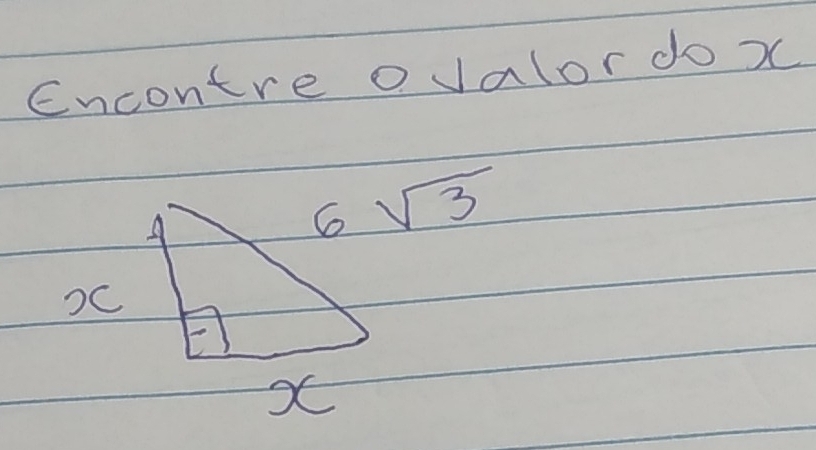 Encontre o valor do x
6 √3
x
x